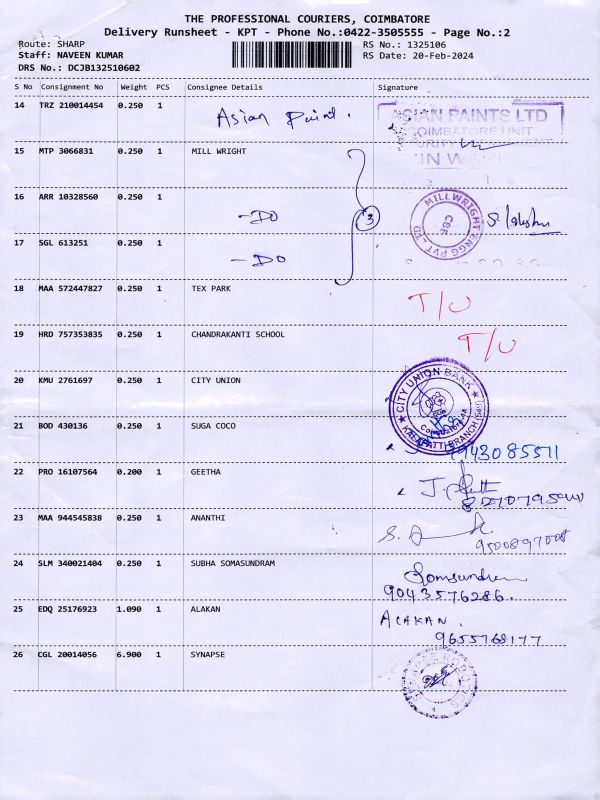 THE PROFESSIONAL COURIERS, COIMBATORE
Delivery Runsheet - KPT - Phone No.:0422-3505555 - Page No.:2
Route: SHARP RS No.: 1325106
Staff: NAVEEN KUMAR RS Date: 20-Feb-2024
DRS No.: DCJB132510602
S No Consignment No Weight PCS Consignee Details Signature
14 TRZ 210014454 0.250 1 Asian Paint. ASIAN PAINTS LTD
COIMBATORE UNIT
15 MTP 3066831 0.250 1 MILL WRIGHT
16 ARR 10328560 0.250 1 -DO 3 MILLWRIGHT ENGG PVT-LTD CBE
17 SGL 613251 0.250 1 -DO
18 MAA 572447827 0.250 1 TEX PARK T/U
19 HRD 757353835 0.250 1 CHANDRAKANTI SCHOOL T/U
20 KMU 2761697 0.250 1 CITY UNION CITY UNION BANK KALAPATTI BRANCH
21 BOD 430136 0.250 1 SUGA COCO 9943085511
22 PRO 16107564 0.200 1 GEETHA
23 MAA 944545838 0.250 1 ANANTHI 9500897008
24 SLM 340021404 0.250 1 SUBHA SOMASUNDRAM Somsundram
9043576286.
25 EDQ 25176923 1.090 1 ALAKAN ALAKAN.
9655768177
26 CGL 20014056 6.900 1 SYNAPSE